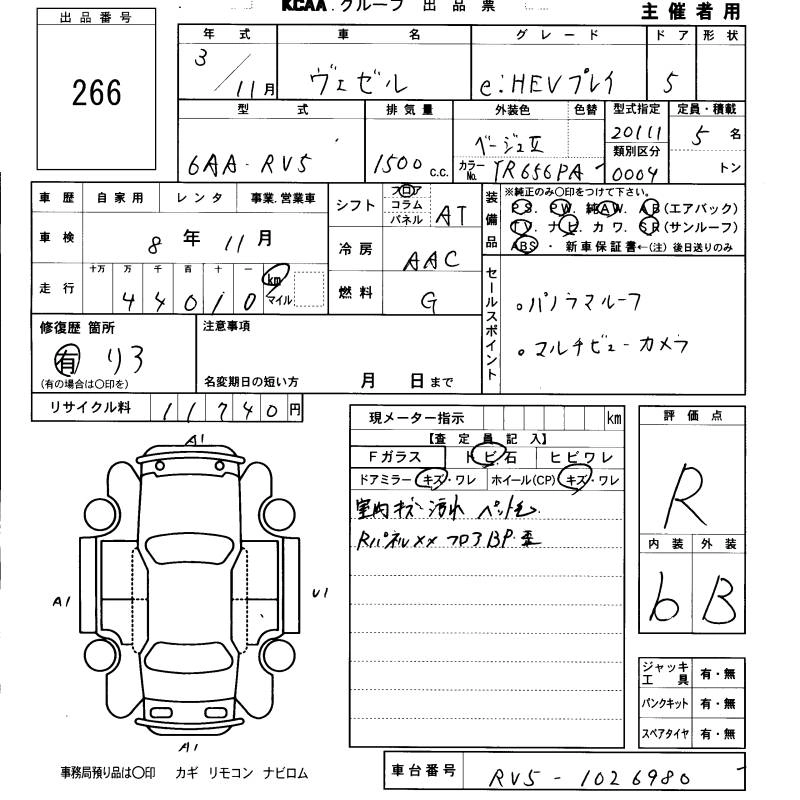 KCAA.グループ 出品票
主催者用
出品番号
266
年式 車名 グレード ドア 形状
3/11月 ヴェゼル e:HEVプレイ 5
型式 排気量 外装色 色替 型式指定 定員・積載
6AA-RV5 1500c.c. ベージュII 20111 5名
カラーNo. YR656PA 類別区分 0004 トン
車歴 自家用 レンタ 事業.営業車
車検 8年11月
走行 十万 万 千 百 十 一
44010 km マイル
シフト フロア コラム パネル AT
冷房 AAC
燃料 G
装備品 ※純正のみ〇印をつけて下さい。
PS. PW. 純AW. AB(エアバック)
TV. ナビ. カワ. SR(サンルーフ)
ABS ・ 新車保証書←(注)後日送りのみ
セールスポイント
。パノラマルーフ
。マルチビューカメラ
修復歴 箇所
有
(有の場合は〇印を)
注意事項
名変期日の短い方 月 日まで
リサイクル料 11740円
現メーター指示 km
【査定員記入】
Fガラス トビ石 ヒビワレ
ドアミラー キズ・ワレ ホイール(CP) キズ・ワレ
室内キズ 汚れ ペット毛
Rパネル×× フロアBP.歪
評価点
R
内装 外装
b B
A1
A1
U1
A1
ジャッキ工具 有・無
パンクキット 有・無
スペアタイヤ 有・無
事務局預り品は〇印 カギ リモコン ナビロム
車台番号 RV5-1026980